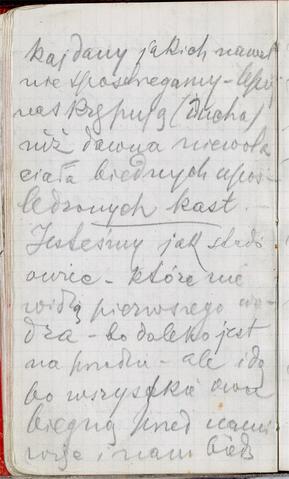 kajdany jakich nawet
nie spostrzegamy - lepiej
nas krępują (Ducha)
niż dawna niewola
ciała biednych upoś-
ledzonych kast.
Jesteśmy jak stado
owiec - które nie
widzą pierwszego wo-
dza - bo daleko jest
na przedzie - ale idą
bo wszystkie owce
biegną przed nami
więc i nam bied